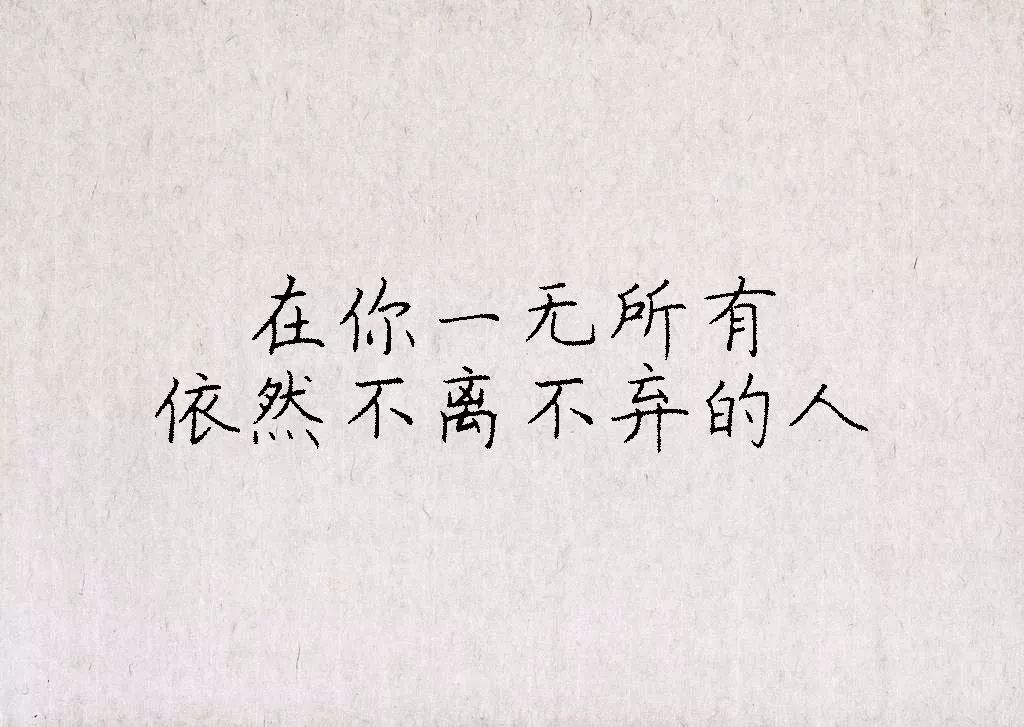 在你一无所有
依然不离不弃的人